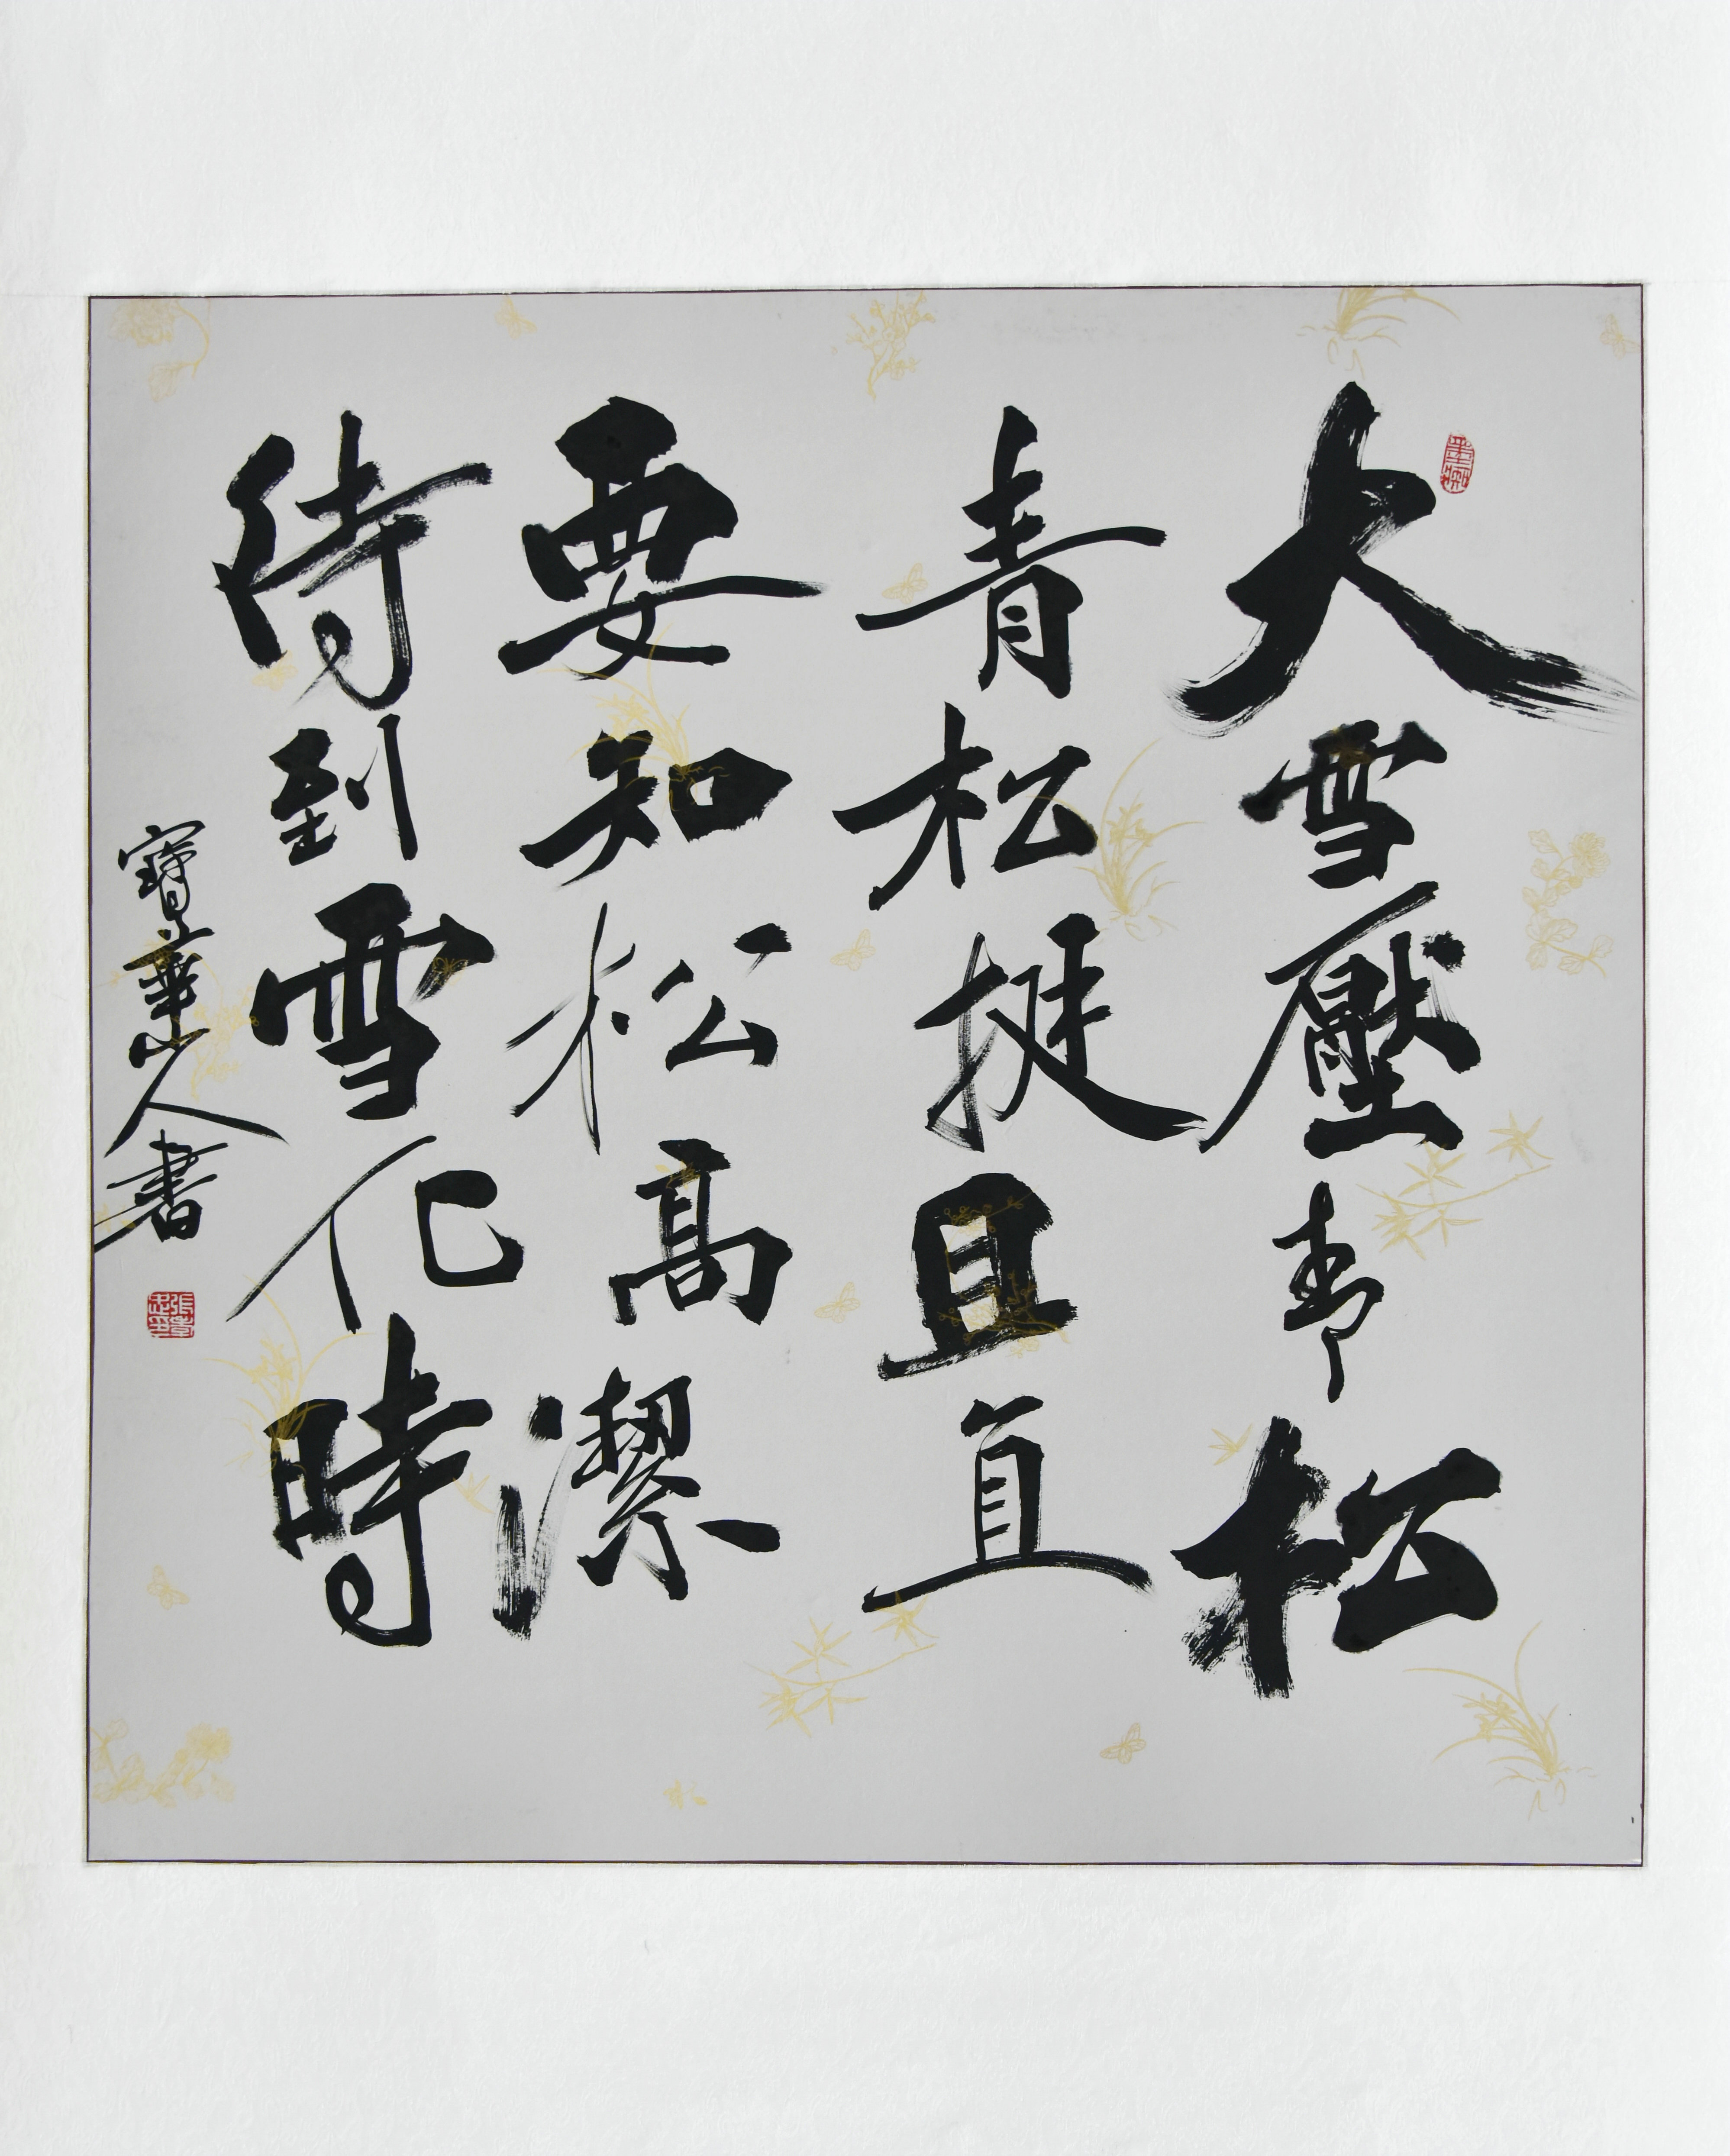 大雪壓青松
青松挺且直
要知松高潔
待到雪化時
寶華山人書